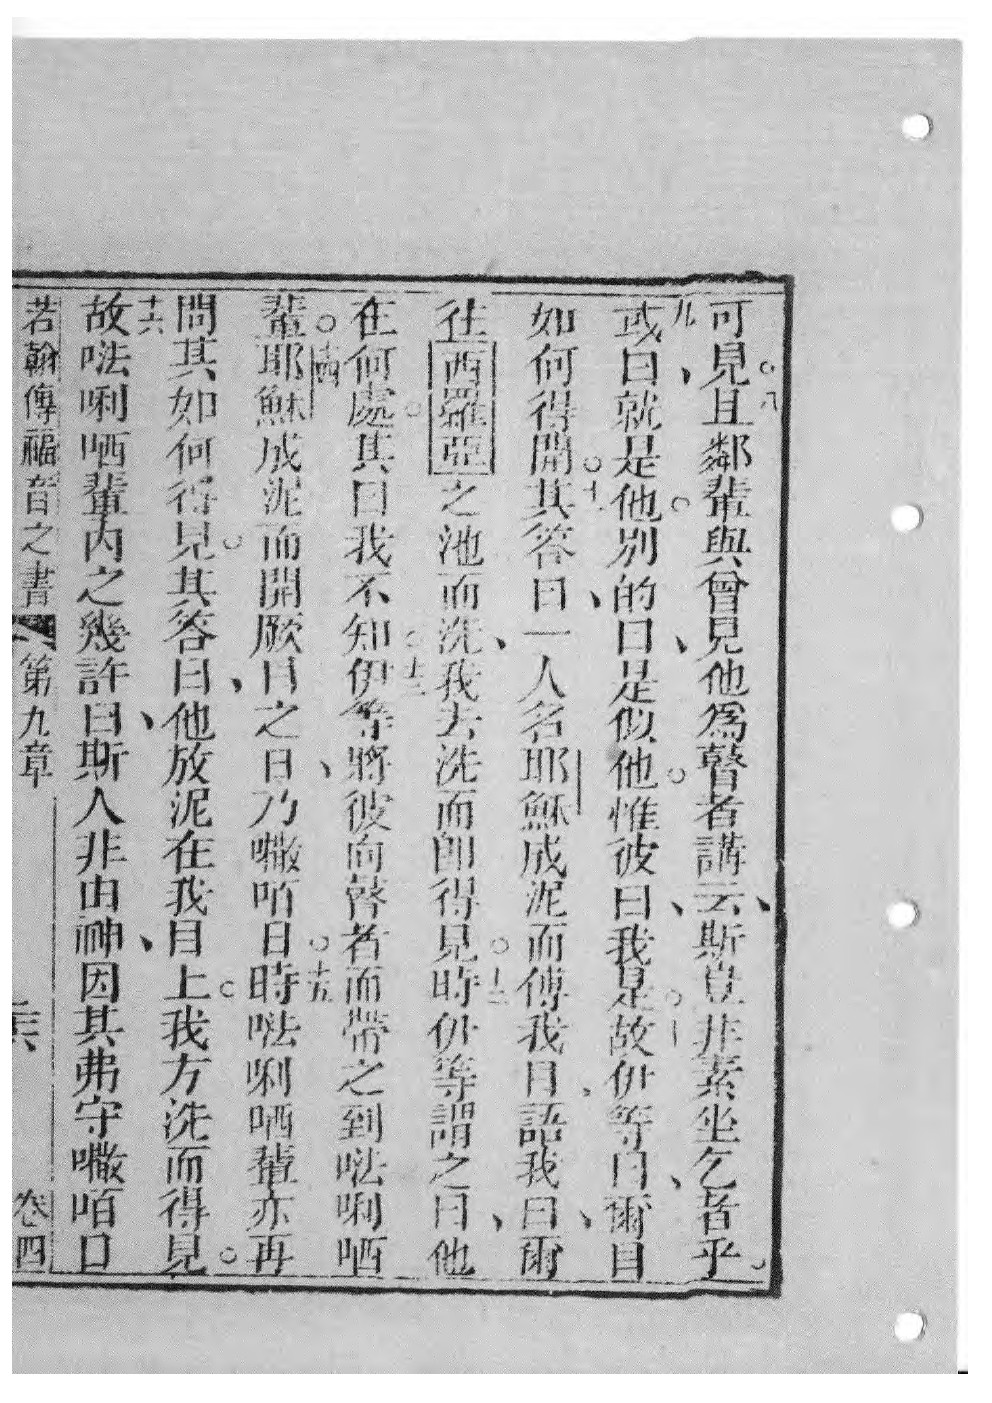 可見。八且鄰輩與曾見他為瞽者講云、斯豈非素坐乞者乎。
九或曰、就是他。別的曰、是似他。惟彼曰、我是。十故伊等曰、爾目
如何得開。十一其答曰、一人名耶穌成泥而傅我目、語我曰、爾
往西羅亞之池而洗、我去洗而卽得見。十二時伊等謂之曰、他
在何處。其曰我不知。十三伊等將彼向瞽者而帶之到㖕唎哂
輩。十四耶穌成泥而開厥目之日、乃㘔咟日。十五時㖕唎哂輩亦再
問其如何得見。其答曰、他放泥在我目上。我方洗而得見。
十六故㖕唎哂輩內之幾許曰、斯人非由神、因其弗守㘔咟日
若翰傳福音之書 第九章 卷四